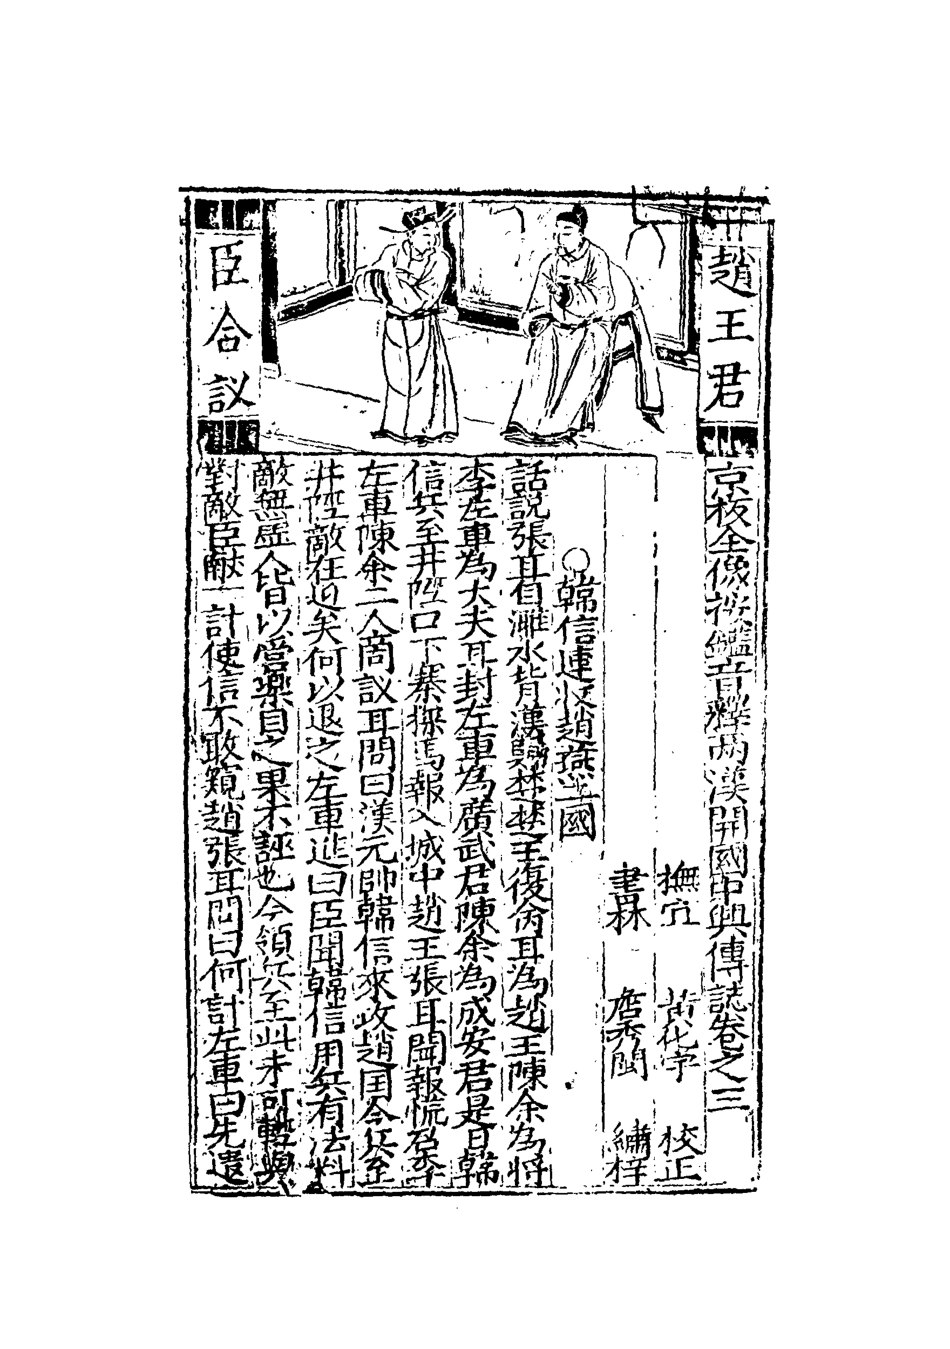 趙王君
臣合议
京板全像按鑑音釋两漢開國中興傳誌卷之三
撫宜 黃化宇 校正
書林 詹秀閩 繡梓
○韓信連收趙燕二國
話說張耳自濉水背漢歸楚楚王復命耳為趙王陳余為將
李左車為大夫耳封左車為廣武君陳余為成安君是日韓
信兵至井陘口下寨探馬報入城中趙王張耳聞報慌召李
左車陳余二人商议耳問曰漢元帥韓信來收趙国今兵至
井陘敵在迫矣何以退之左車進曰臣聞韓信用兵有法料
敵無虛人皆以當樂目之果不誣也今領兵至此未可輕與
對敵臣献一計使信不敢窺趙張耳問曰何計左車曰先遣